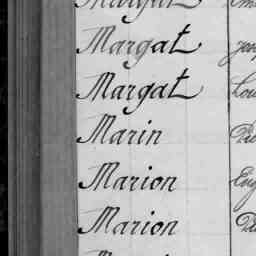 Margat
Margat
Margat
Marin
Marion
Marion